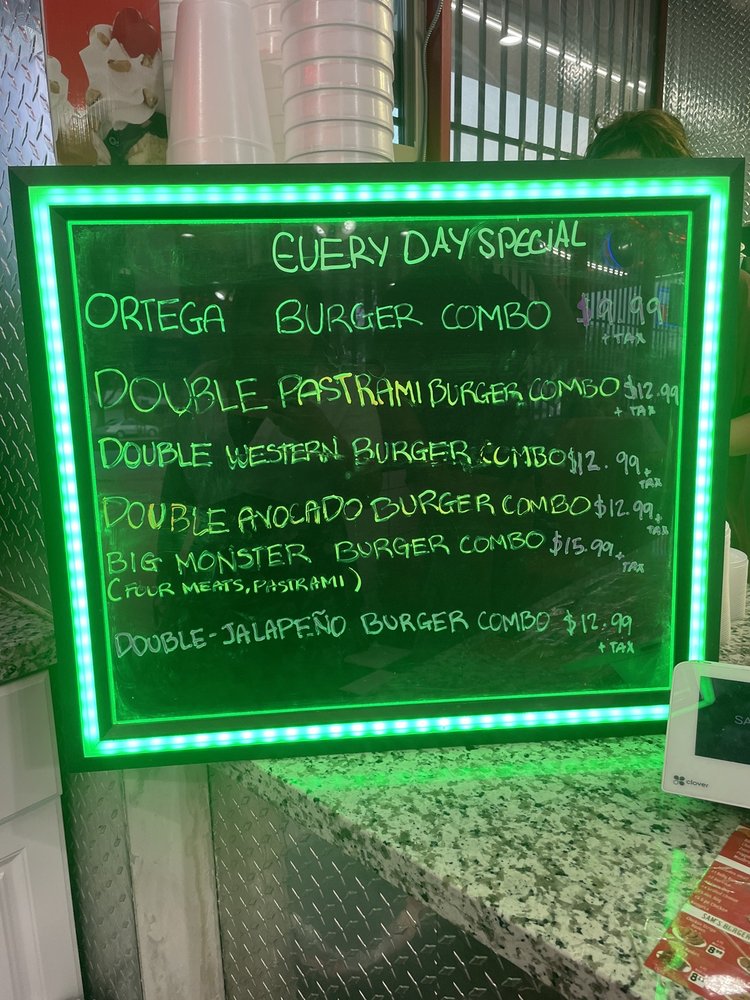 EVERY DAY SPECIAL
ORTEGA BURGER COMBO $9.99
+ TAX
DOUBLE PASTRAMI BURGER COMBO $12.99
+ TAX
DOUBLE WESTERN BURGER COMBO $12.99+
TAX
DOUBLE AVOCADO BURGER COMBO $12.99+
TAX
BIG MONSTER BURGER COMBO $15.99+
TAX
(FOUR MEATS, PASTRAMI)
DOUBLE-JALAPEÑO BURGER COMBO $12.99
+ TAX
clover